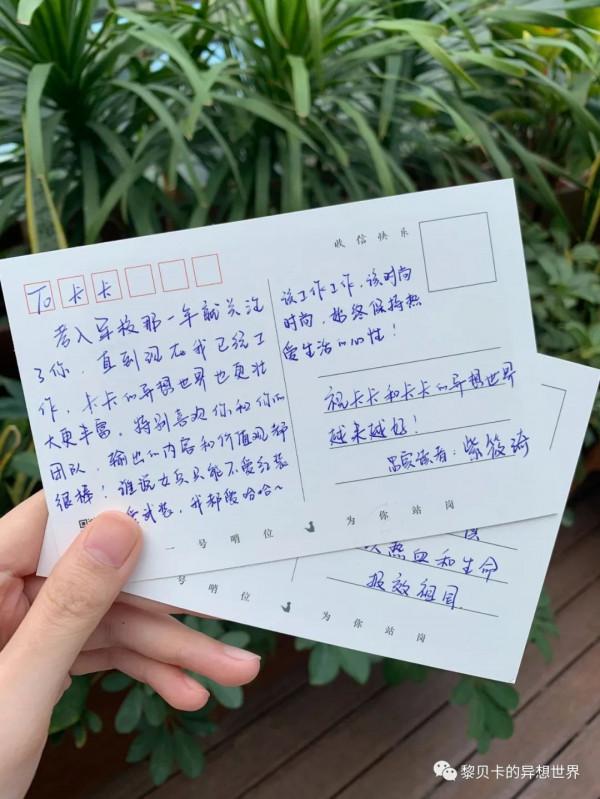 收信快乐
To卡卡
考入军校那一年就关注
了你，直到现在我已经工
作，卡卡的异想世界也更壮
大更丰富，特别喜欢你和你的
团队，输出的内容和价值观都
很棒！谁说女兵只能不爱红装
武装，我都爱哈哈~
该工作工作，该时尚
时尚，始终保持热
爱生活的心性！
祝卡卡和卡卡的异想世界
越来越好！
读者：紫筱琦
一号哨位 为你站岗
热血和生命
报效祖国.
号哨位 为你站岗
黎贝卡的异想世界